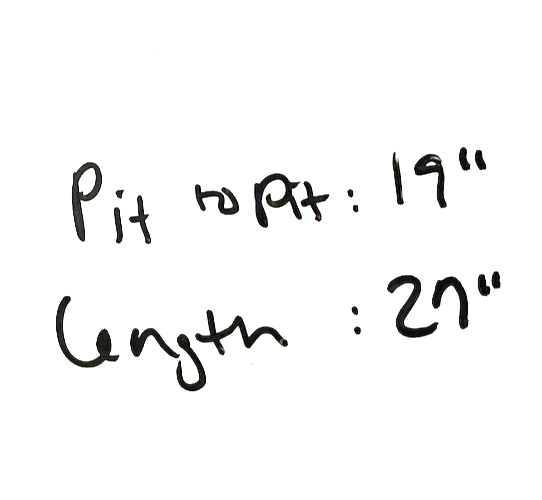 Pit to Pit: 19"
Length : 27"